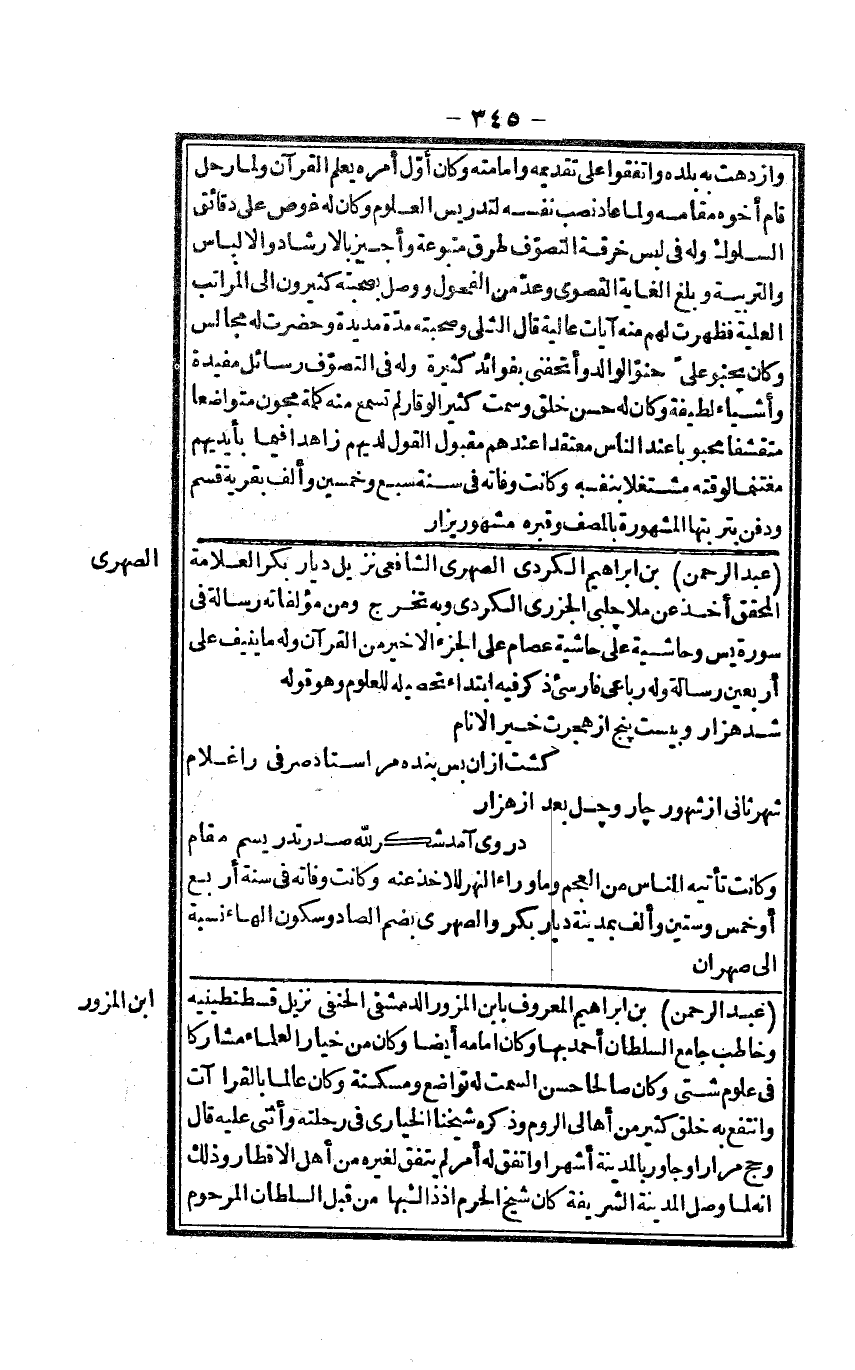 - ٣٤٥ -
وازدهت به بلده واتفقوا على تقديمه وامامته وكان أوّل أمره يعلم القرآن ولما رحل
قام أخوه مقامه ولما عاد نصب نفسه لتدريس العلوم وكان له غوص على دقائق
السلوك وله فى لبس خرقة التصوّف طرق متبوعة وأجيز بالارشاد والالباس
والتربية وبلغ الغاية القصوى وعدّ من الفحول ووصل بصحبته كثيرون الى المراتب
العلية فظهرت لهم منه آيات عالية قال الشلى وصحبته مدّة مديدة وحضرت له مجالس
وكان يحنو علىّ حنوّ الوالد وأتحفنى بفوائد كثيرة وله فى التصوّف رسائل مفيدة
وأشياء لطيفة وكان له حسن خلق وسمت كثير الوقار لم تسمع منه كلمة مجون متواضعا
متقشفا محبوبا عند الناس معتقدا عندهم مقبول القول لديهم زاهدا فيما بأيديهم
مغتنما لوقته مشتغلا بنفسه وكانت وفاته فى سنة سبع وخمسين وألف بقرية قسم
ودفن بتربتها المشهورة بالمصف وقبره مشهور يزار
الصهرى
(عبد الرحمن) بن ابراهيم الكردى الصهرى الشافعى نزيل ديار بكر العلامة
المحقق أخذ عن ملا جلبى الجزرى الكردى وبه تخرج ومن مؤلفاته رسالة فى
سورة يس وحاشية على حاشية عصام على الجزء الاخير من القرآن وله ما ينيف على
أربعين رسالة وله رباعى فارسىّ ذكر فيه ابتداء تحصيله للعلوم وهو قوله
شد هزار وبيست پنج از هجرت خير الانام
كشت ازان بس بنده مر استاد صرفى را غلام
شهر ثانى از شهور چار وچل بعد از هزار
دروى آمد شكر لله صدر تدريسم مقام
وكانت تأتيه الناس من العجم وما وراء النهر للاخذ عنه وكانت وفاته فى سنة أربع
أو خمس وستين وألف بمدينة ديار بكر والصهرى بضم الصاد وسكون الهاء نسبة
الى صهران
ابن المزور
(عبد الرحمن) بن ابراهيم المعروف بابن المزور الدمشقى الحنفى نزيل قسطنطينيه
وخاطب جامع السلطان أحمد بها وكان امامه أيضا وكان من خيار العلماء مشاركا
فى علوم شتى وكان صالحا حسن السمت له تواضع ومسكنة وكان عالما بالقرا آت
وانتفع به خلق كثير من أهالى الروم وذكره شيخنا الخيارى فى رحلته وأثنى عليه قال
وحج مرارا وجاور بالمدينة أشهرا واتفق له أمر لم يتفق لغيره من أهل الاقطار وذلك
انه لما وصل المدينة الشريفة كان شيخ الحرم اذذاك بها من قبل السلطان المرحوم